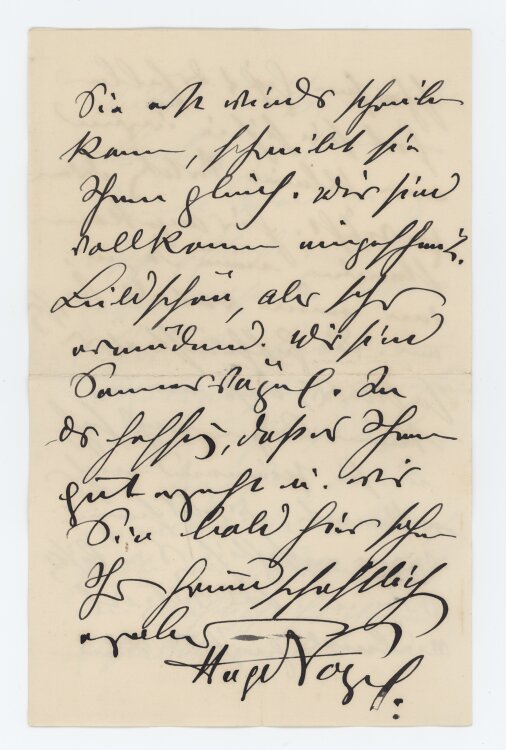 Sie erst wieder schreiben
kann, schreibt sie
Ihnen gleich. Wir sind
vollkommen eingeschneit.
Bildschön, aber sehr
ermüdend. Wir sind
Sommervögel. In
der Hoffng, daß es Ihnen
gut geht u. wir
Sie bald hier sehen
Ihr freundschaftlich
ergebener
Hugo Vogel.